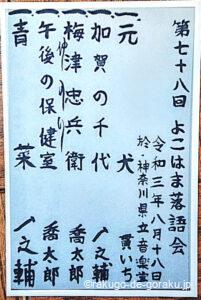 第七十八回 よこはま落語会
令和三年八月十八日
於・神奈川県立音楽堂
一元犬 貫いち
一加賀の千代 一之輔
一梅津忠兵衛 喬太郎
仲入り
一午後の保健室 喬太郎
一青菜 一之輔
©rakugo-de-goraku.jp